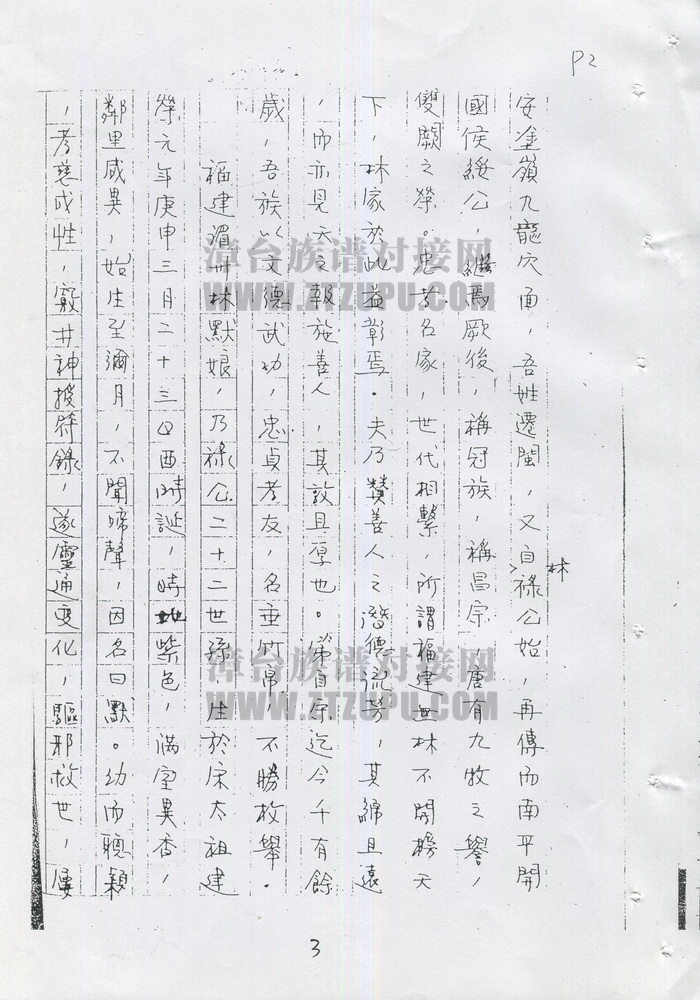 P2
安塗嶺九龍穴面，吾姓遷閩，又自林祿公始，再傳而南平開
國侯綏公，繼焉厥後，稱冠族，稱昌宗，唐有九牧之譽，
雙闕之榮。忠孝名家，世代相繫，所謂福建無林不開榜天
下，林家於此益彰焉。夫乃贊善人之潛德流芳，其締且遠
，而亦見天之報施善人，其敦且厚也。第自宋迄今千有餘
歲，吾族以文德武功，忠貞孝友，名垂竹帛，不勝枚舉。
福建湄州林默娘，乃祿公二十二世孫生於宋太祖建
榮元年庚申三月二十三日酉時誕，時地紫色，滿室異香，
鄰里咸異，始生至彌月，不聞啼聲，因名曰默。幼而聰穎
，孝養成性，窺井神授符錄，遂靈通變化，驅邪救世，屢
3
漳台族谱对接网
WWW.ZTZUPU.COM
漳台族谱对接网
WWW.ZTZUPU.COM